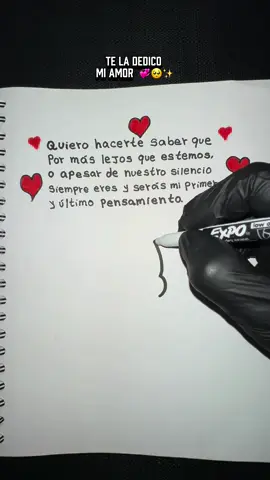 TE LA DEDICO
MI AMOR 💞🥺✨
Quiero hacerte saber que
Por más lejos que estemos,
o apesar de nuestro silencio
siempre eres y serás mi primer
y último Pensamienta
EXPO
low o